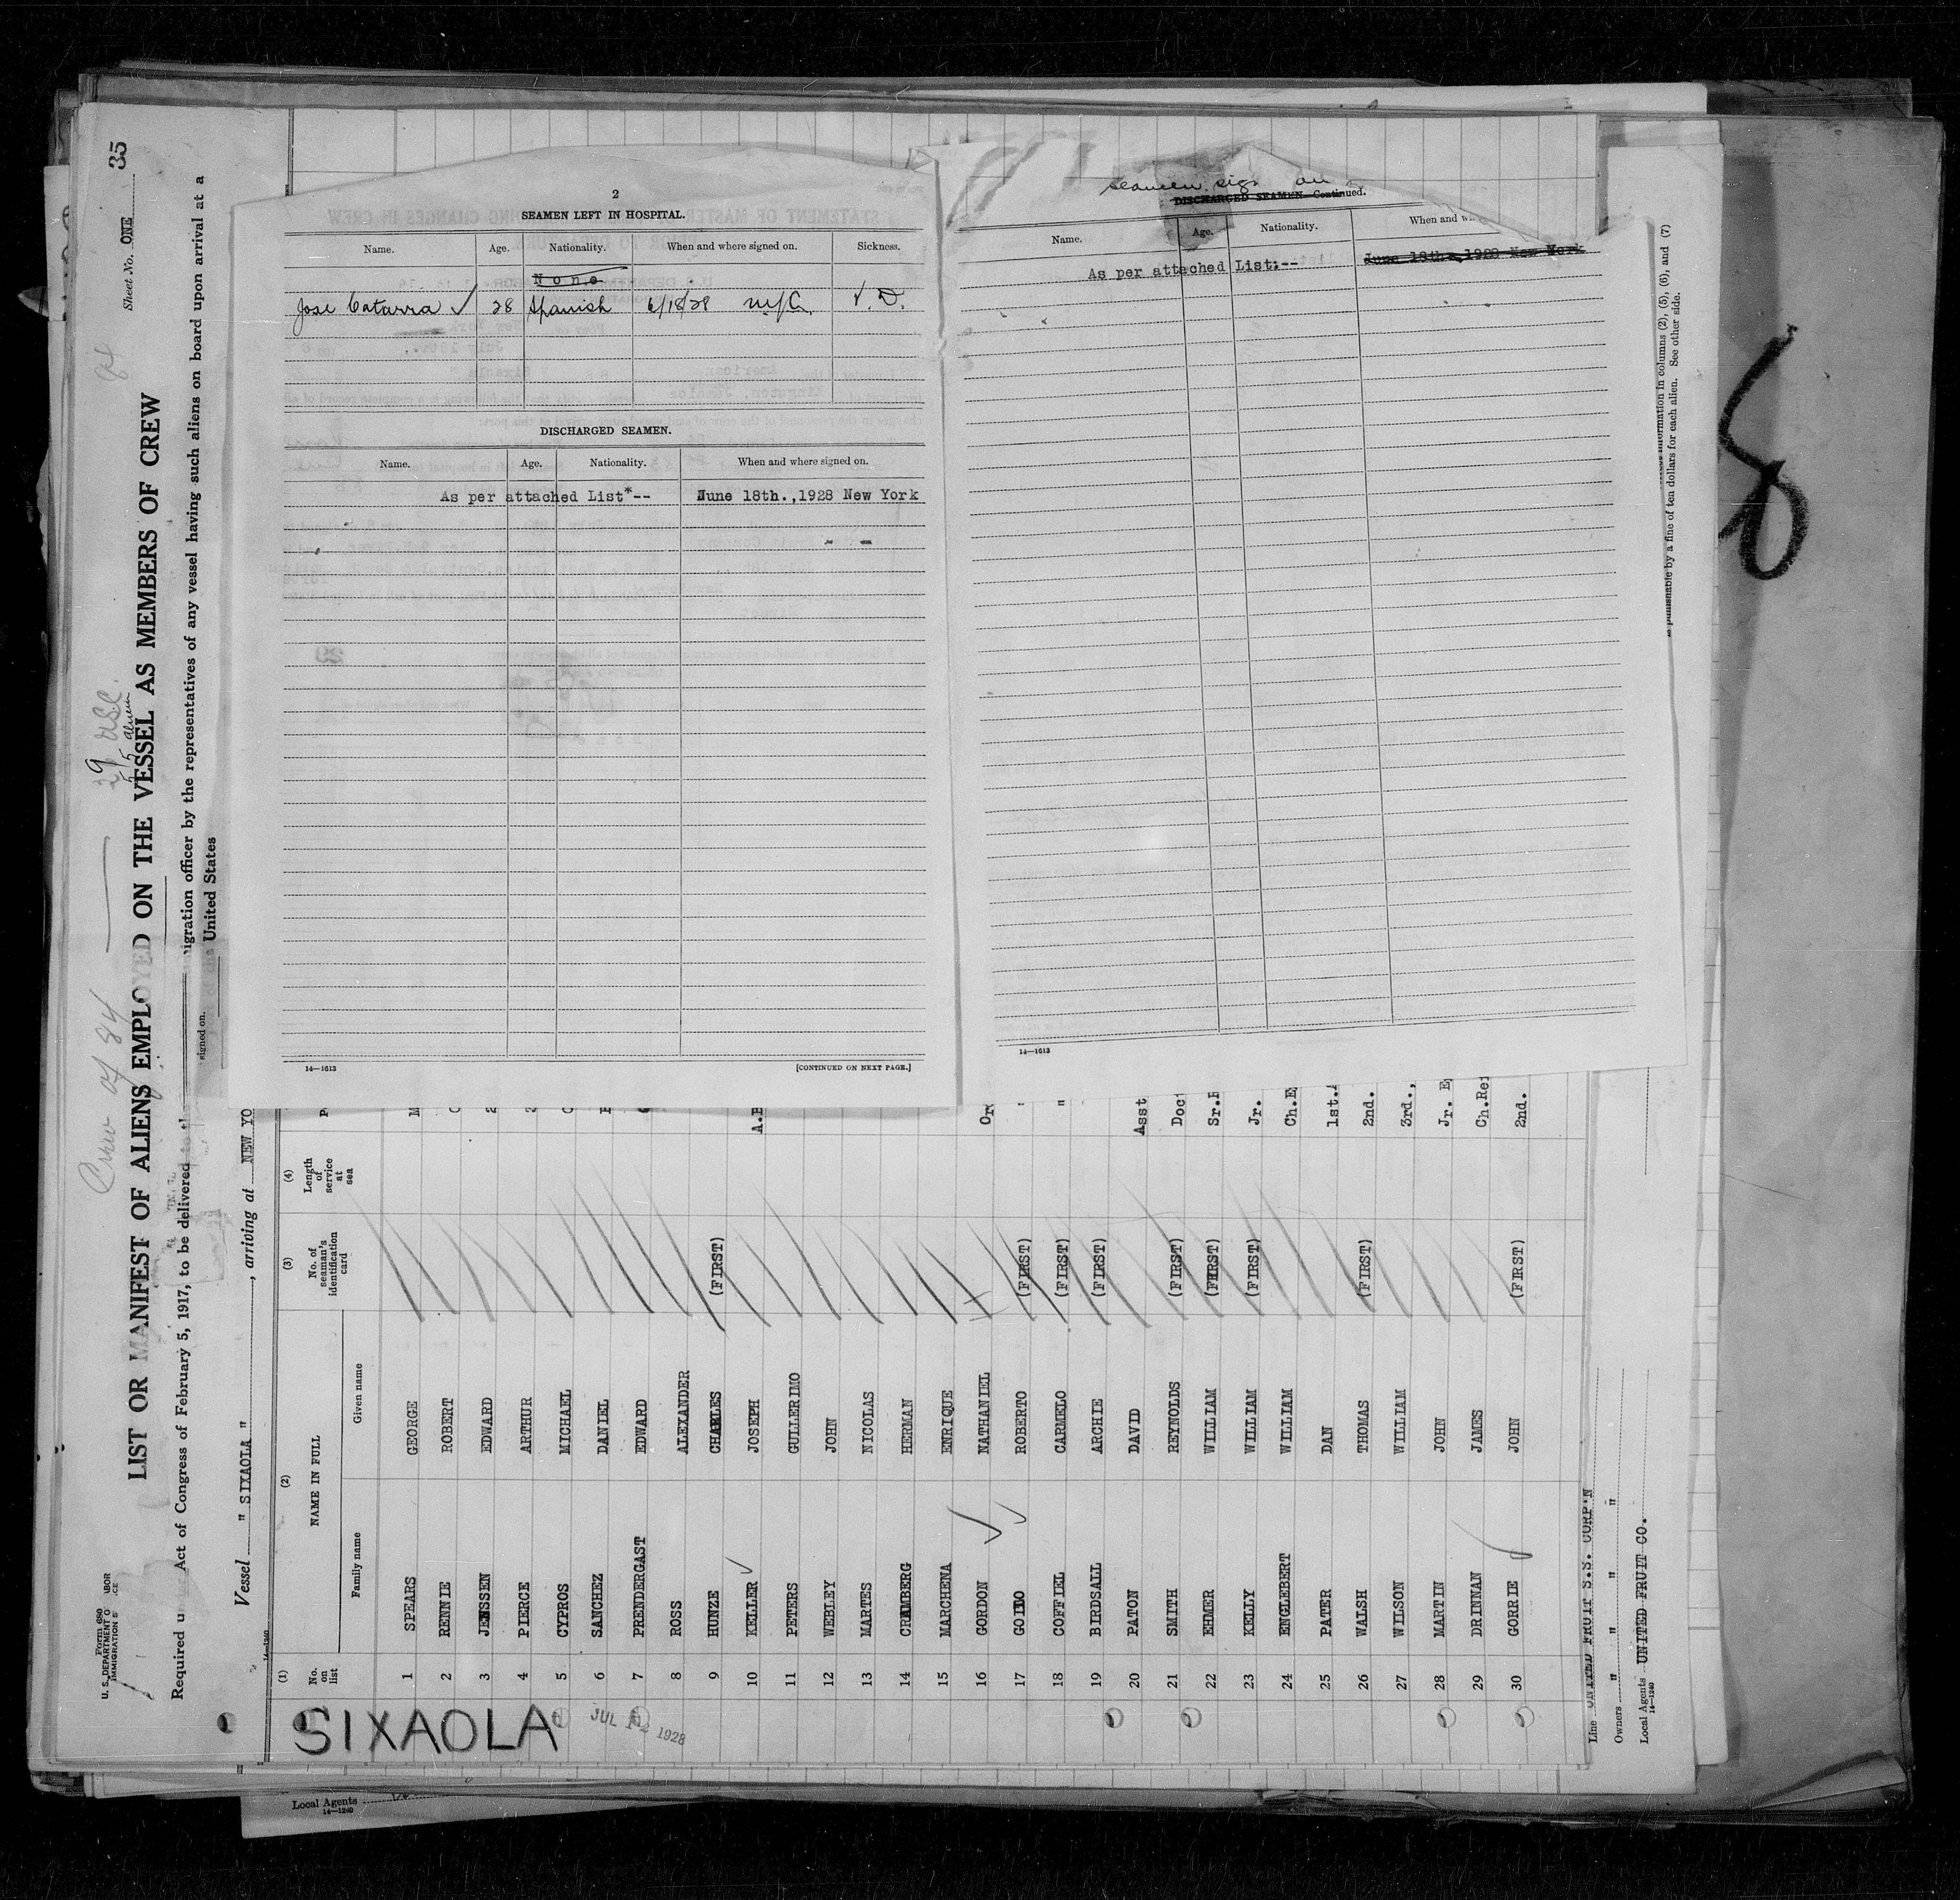 2
SEAMEN LEFT IN HOSPITAL.
Name. Age. Nationality. When and where signed on. Sickness.
None
Jose Catarra ✓ 28 Spanish 6/18/28 N.Y.C. V.D.
DISCHARGED SEAMEN.
Name. Age. Nationality. When and where signed on.
As per attached List*-- June 18th.,1928 New York
14—1613 [CONTINUED ON NEXT PAGE.]
seamen sign on
DISCHARGED SEAMEN—Continued.
Name. Age. Nationality. When and w
As per attached List:-- June 18th.,1928 New York
14—1613
information in columns (2), (5), (6), and (7)
is punishable by a fine of ten dollars for each alien. See other side.
Form 680
U. S. DEPARTMENT O BOR
IMMIGRATION S CE
Sheet No. ONE 35
Crew of 84
29 USC.
55 aliens
LIST OR MANIFEST OF ALIENS EMPLOYED ON THE VESSEL AS MEMBERS OF CREW
Required u Act of Congress of February 5, 1917, to be delivered to th igration officer by the representatives of any vessel having such aliens on board upon arrival at a
United States
Vessel " SIXAOLA " , arriving at NEW YO
signed on.
14—1240
(1) (2) (3) (4)
No. on list NAME IN FULL No. of seaman's identification card Length of service at sea
Family name Given name
1 SPEARS GEORGE
2 RENNIE ROBERT
3 JENSSEN EDWARD
4 PIERCE ARTHUR
5 CYPROS MICHAEL
6 SANCHEZ DANIEL
7 PRENDERGAST EDWARD
8 ROSS ALEXANDER
9 HUNZE CHARLES (FIRST)
10 KELLER ✓ JOSEPH A.B
11 PETERS GULLERIMO
12 WEBLEY JOHN
13 MARTES NICOLAS
14 CRAMBERG HERMAN
15 MARCHENA ENRIQUE
16 GORDON ✓ NATHANIEL Ord
17 ✓ ROBERTO (FIRST) "
18 COFFIEL CARMELO (FIRST) "
19 BIRDSALL ARCHIE (FIRST)
20 PATON DAVID Asst
21 SMITH REYNOLDS (FIRST) Doct
22 EHMER WILLIAM (FIRST) Sr.P
23 KELLY WILLIAM (FIRST) Jr.
24 ENGLEBERT WILLIAM Ch.E
25 PATER DAN 1st.
26 WALSH THOMAS (FIRST) 2nd.
27 WILSON WILLIAM 3rd.,
28 MARTIN JOHN Jr. E
29 DRINNAN JAMES Ch.Re
30 GORRIE JOHN (FIRST) 2nd.
SIXAOLA
JUL 12 1928
Line UNITED FRUIT S.S. CORP'N
Owners " " " "
Local Agents UNITED FRUIT CO.
14—1240
Local Agents
14—1240